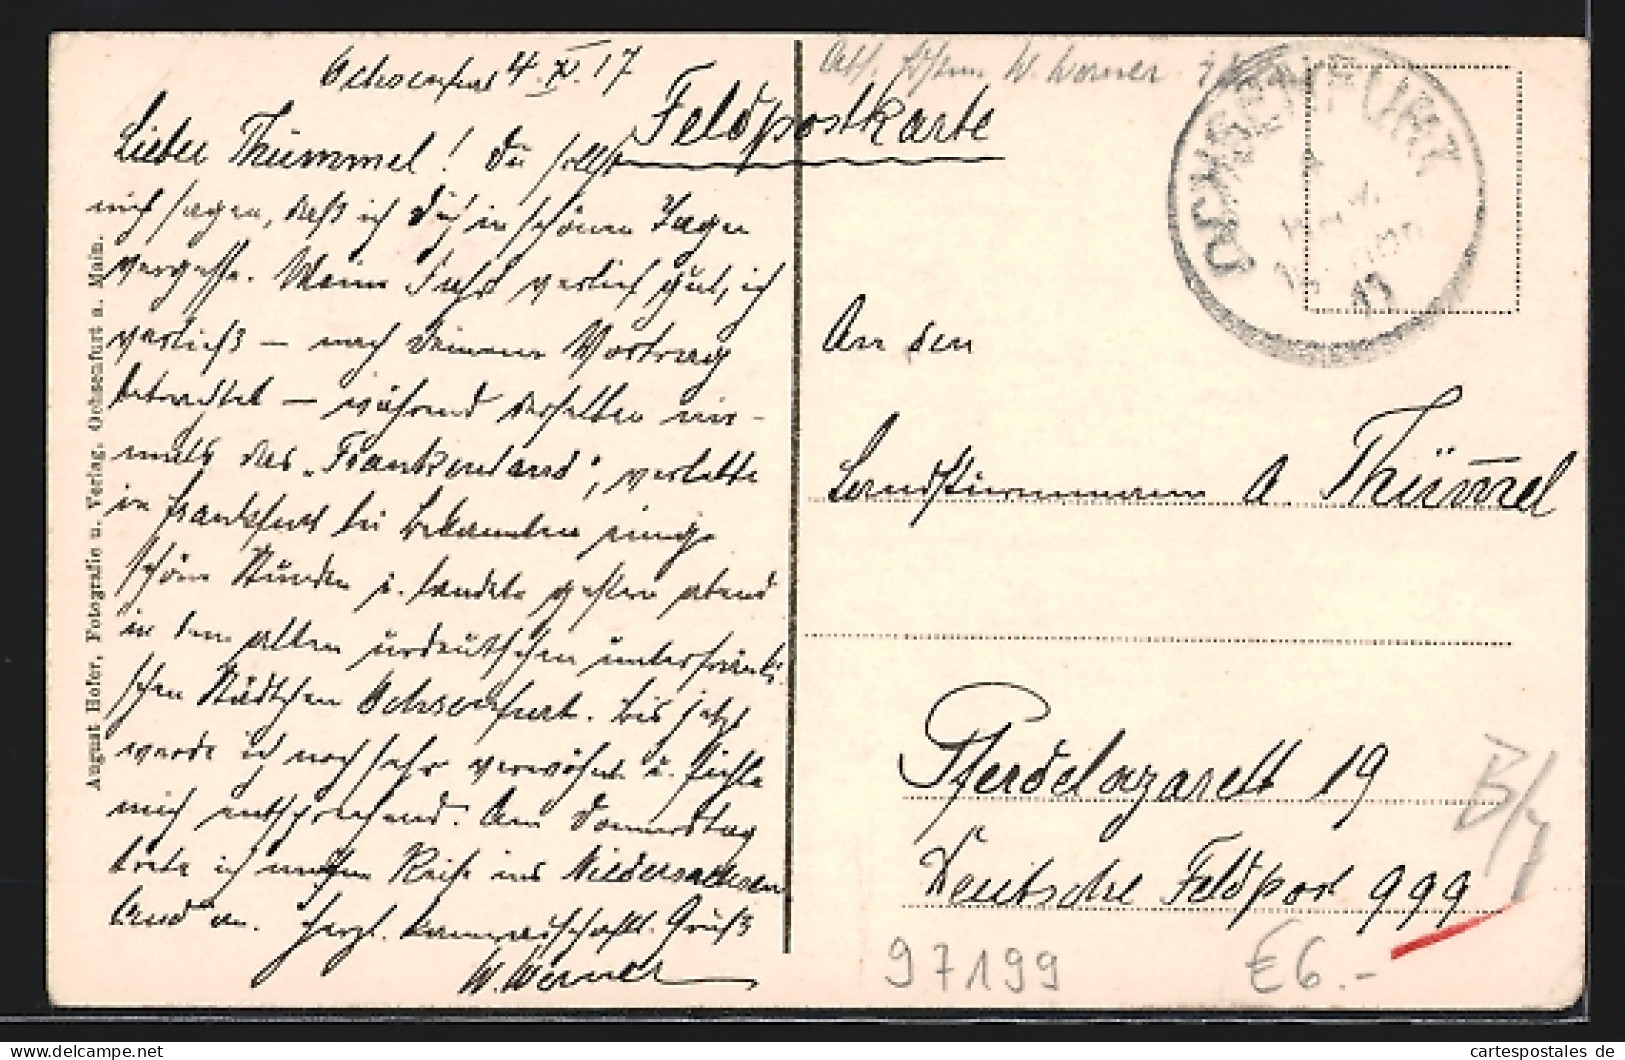 Ochsenfurt 4. XI. 17
Lieber Thümmel! Du sollst
nicht sagen, daß ich Dich in schönen Tagen
vergesse. Meine Fahrt verlief gut, ich
verließ – nach Deinem Vortrag
betrachtet – während desselben nie-
mals das „Frankenland“, verlebte
in Frankfurt bei Bekannten einige
schöne Stunden u. landete gestern abend
in dem alten urdeutschen unterfränki-
schen Städtchen Ochsenfurt. Bis jetzt
werde ich noch sehr verwöhnt u. fühle
mich entsprechend. Am Donnerstag
trete ich meine Reise ins Niedersachsen
land an. Herzl. kameradschaftl. Grüße
W. Werner
August Hofer, Fotografie u. Verlag, Ochsenfurt a. Main.
Abs. W. Werner
Feldpostkarte
OCHSENFURT
4
NOV.
17
An den
Landsturmmann A. Thümmel
Pferdelazarett 19
Deutsche Feldpost 999
B/7
97199
€6.-
www.cartespostales.eu
cartespostales de